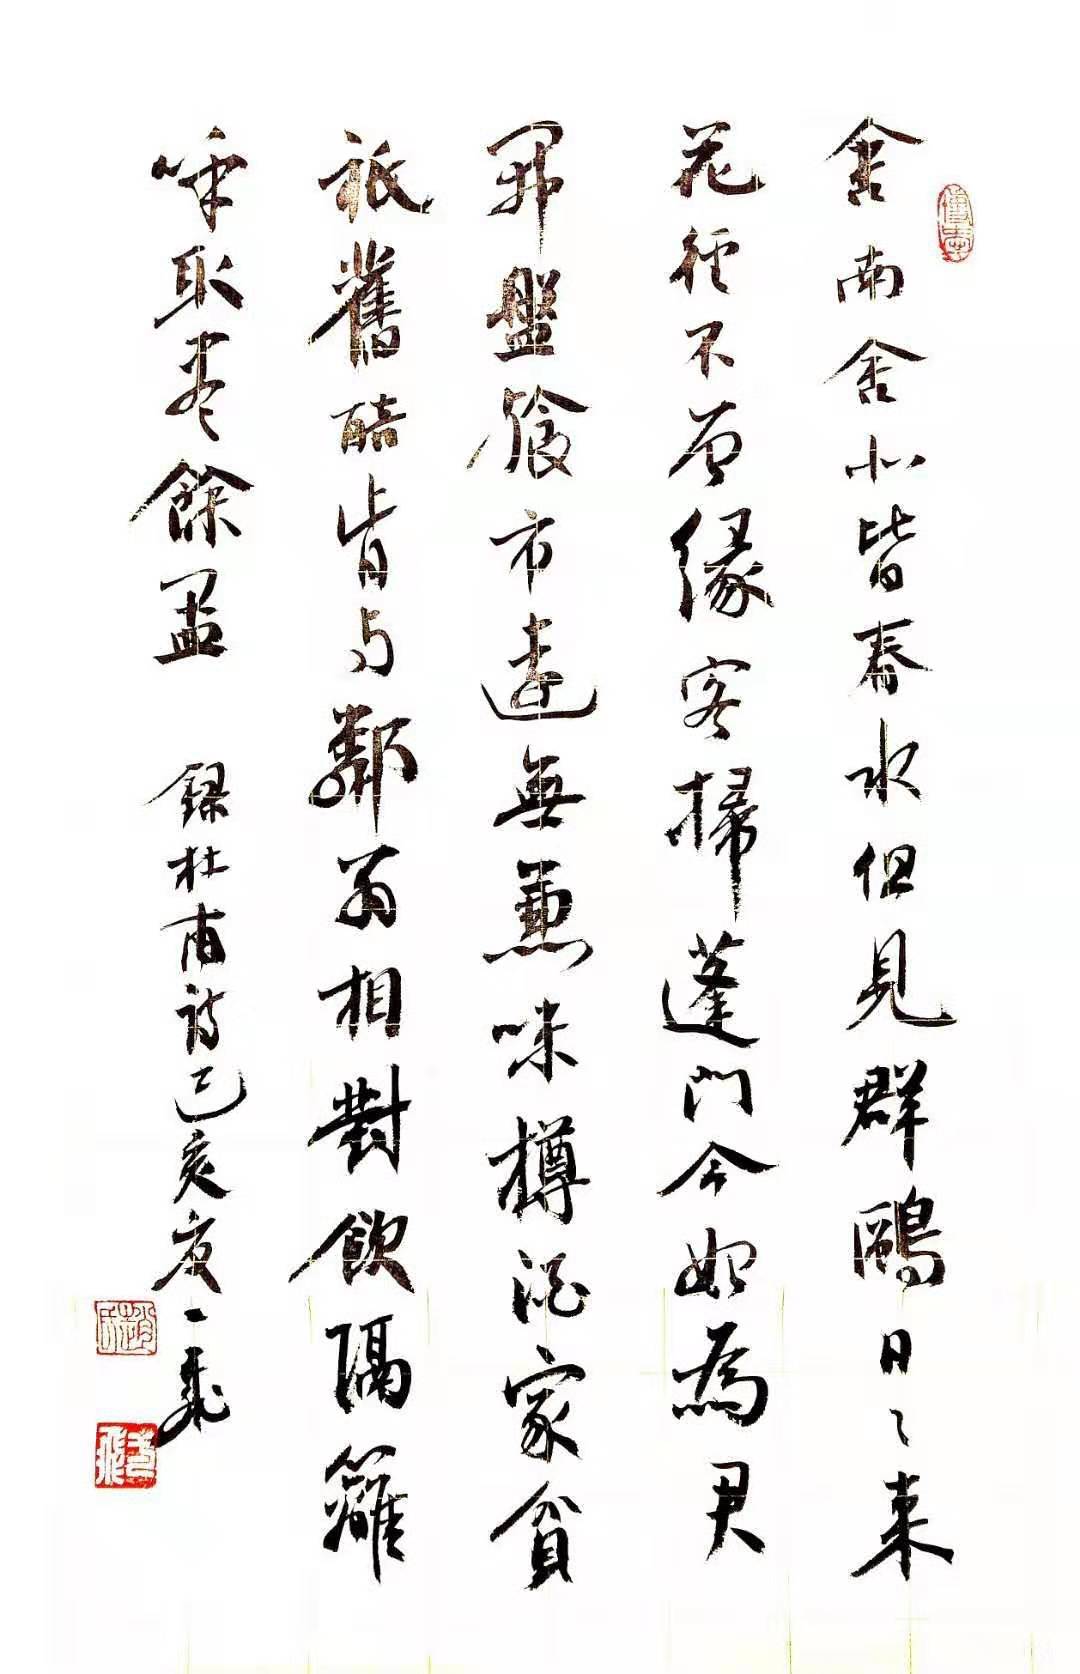 舍南舍北皆春水但見群鷗日〻來
花徑不曾緣客掃蓬門今始為君
開盤飧市遠無兼味樽酒家貧
祇舊醅肯与鄰翁相對飲隔籬
呼取盡餘盃
録杜甫詩己亥夏一飛